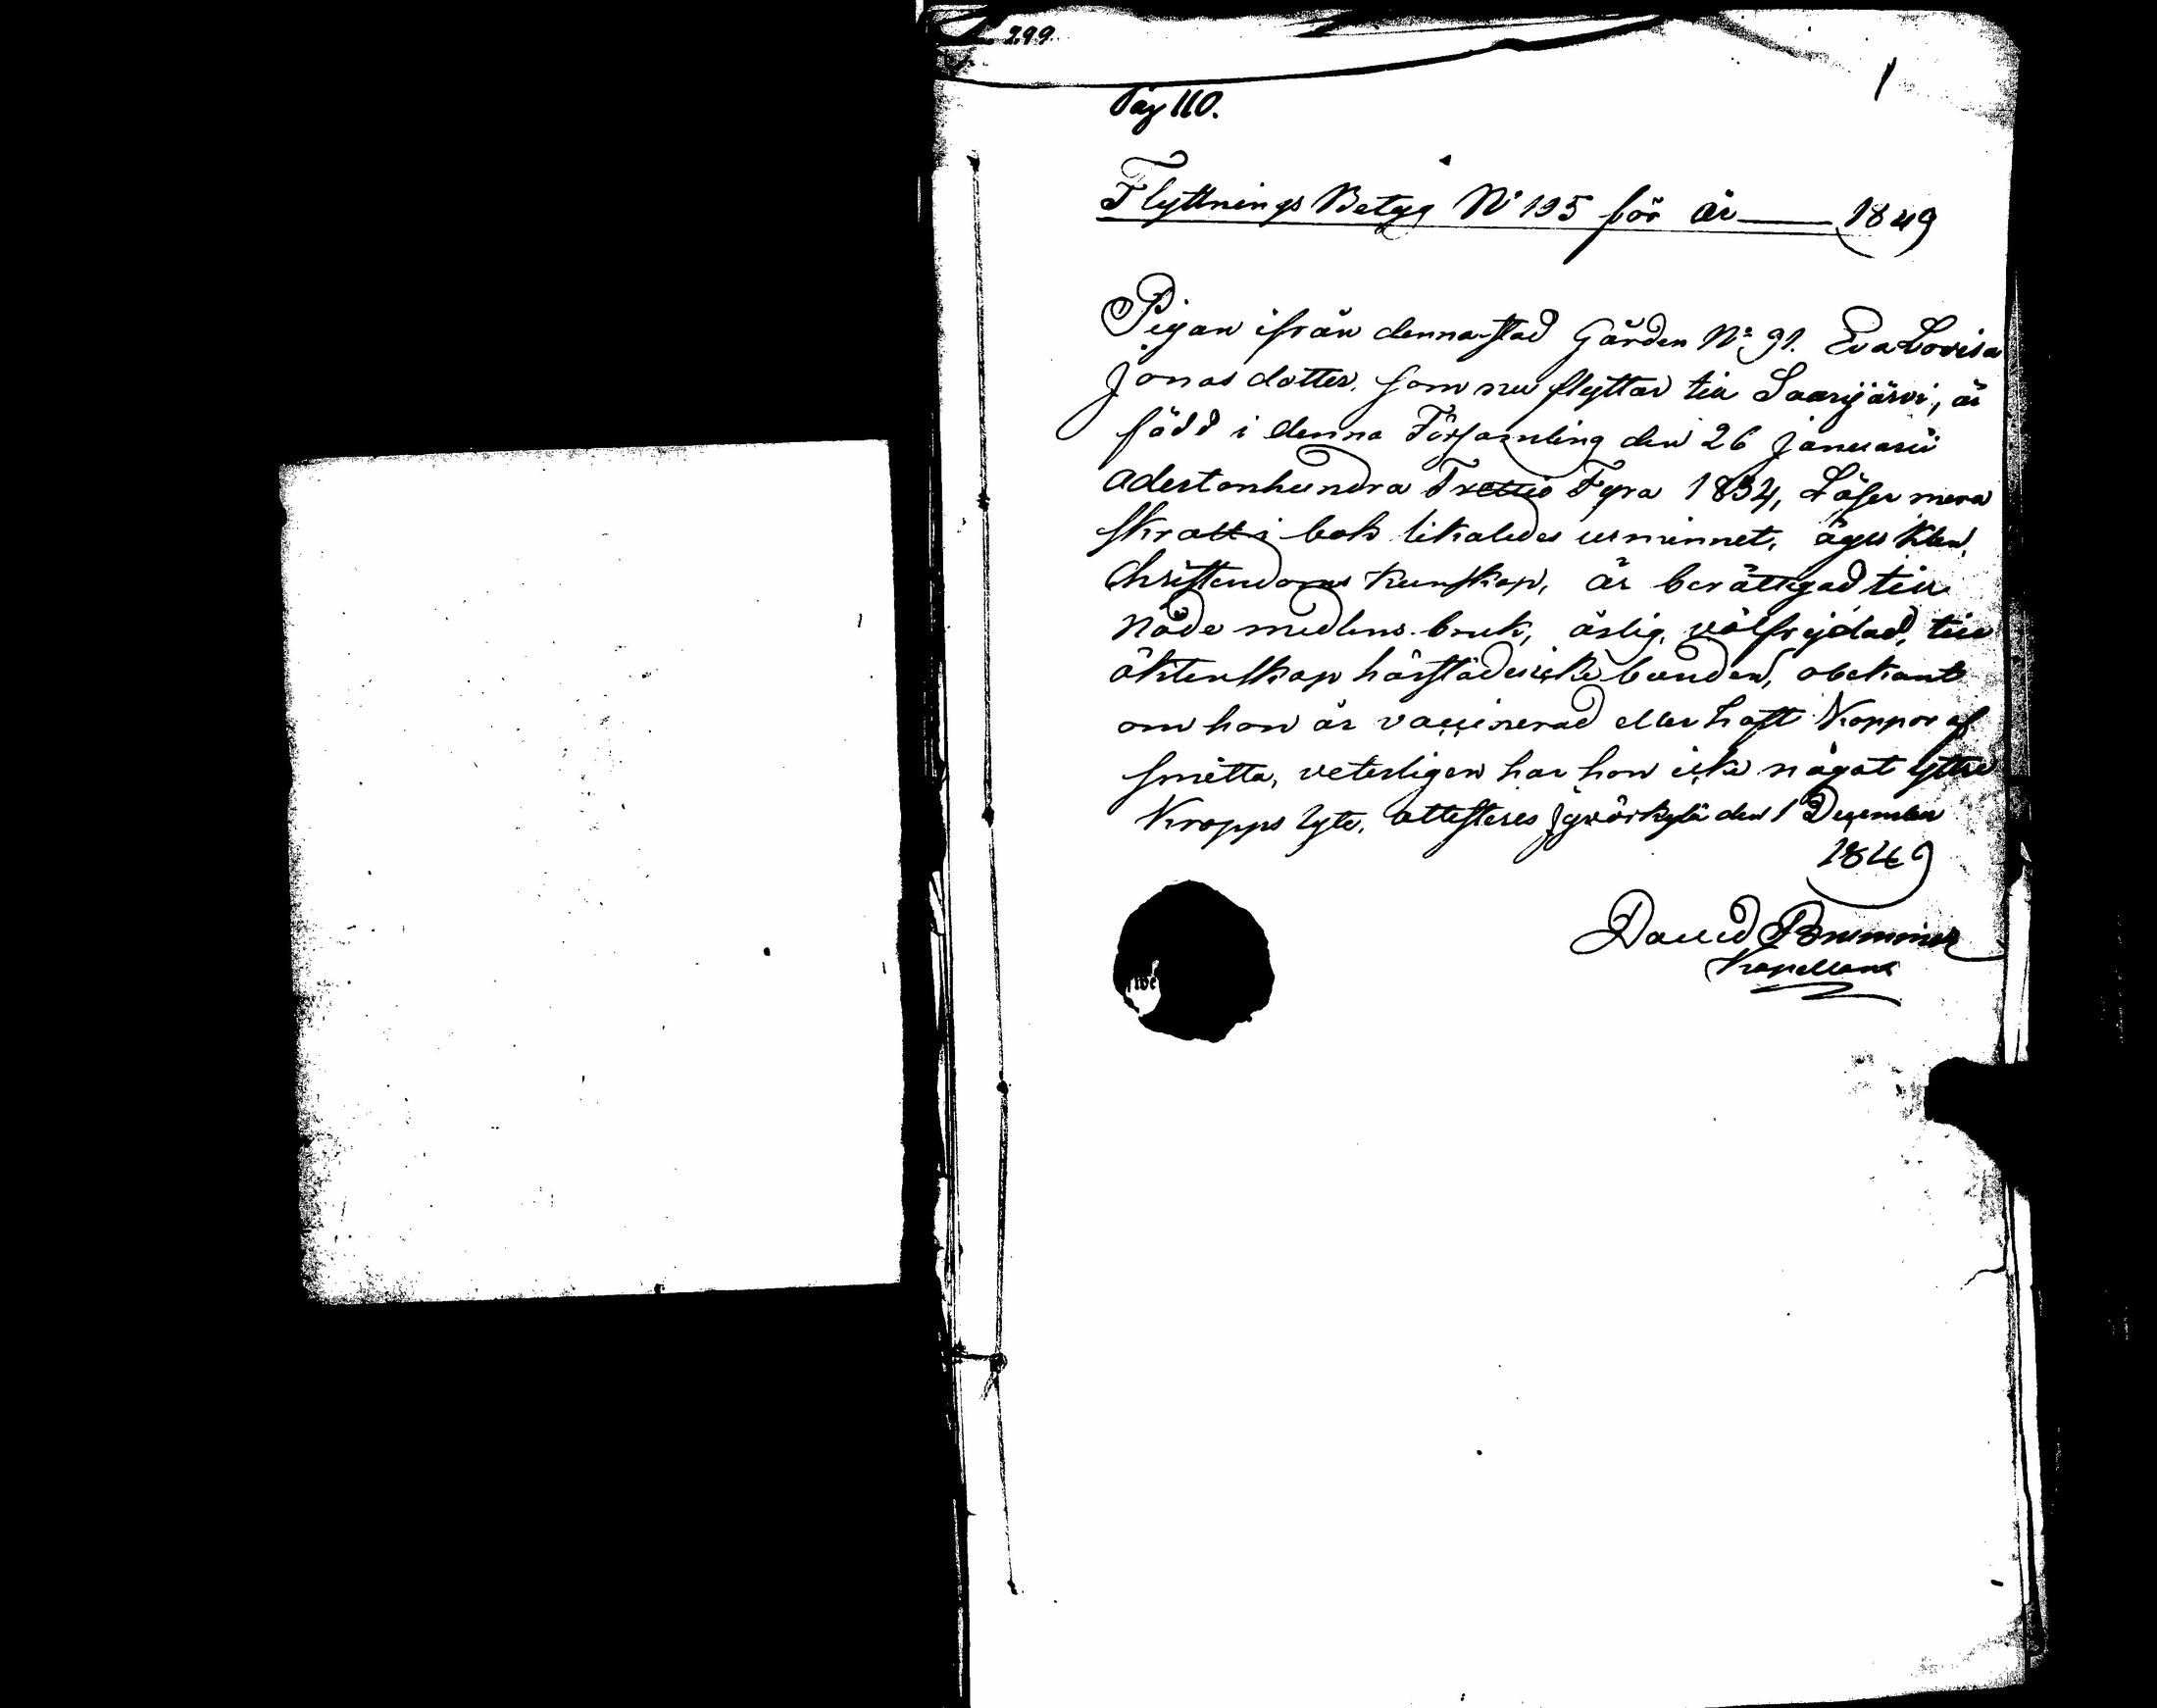 299.
1
Pag 110.
Flyttnings Betyg N° 195 för år 1849
Pigan ifrån denna stad Gården N° 91. Eva Lovisa
Jonas dotter. som nu flyttar till Saarijärvi, är
född i denna Församling den 26 Januarii
adertonhundra Trettio Fyra 1834, Läser mera
skralt i bok likaledes ur minnet, äger klen
Christendoms kunskap, är berättigad till
nåde medlens bruk, ärlig, välfrejdad, till
äktenskap härstädes icke bunden, obekant
om hon är vaccinerad eller haft Koppor af
smitta, veterligen har hon icke något yttre
Kropps lyte, attesteres Jyväskylä den 1 December
1849
David Brummer
Kapellans